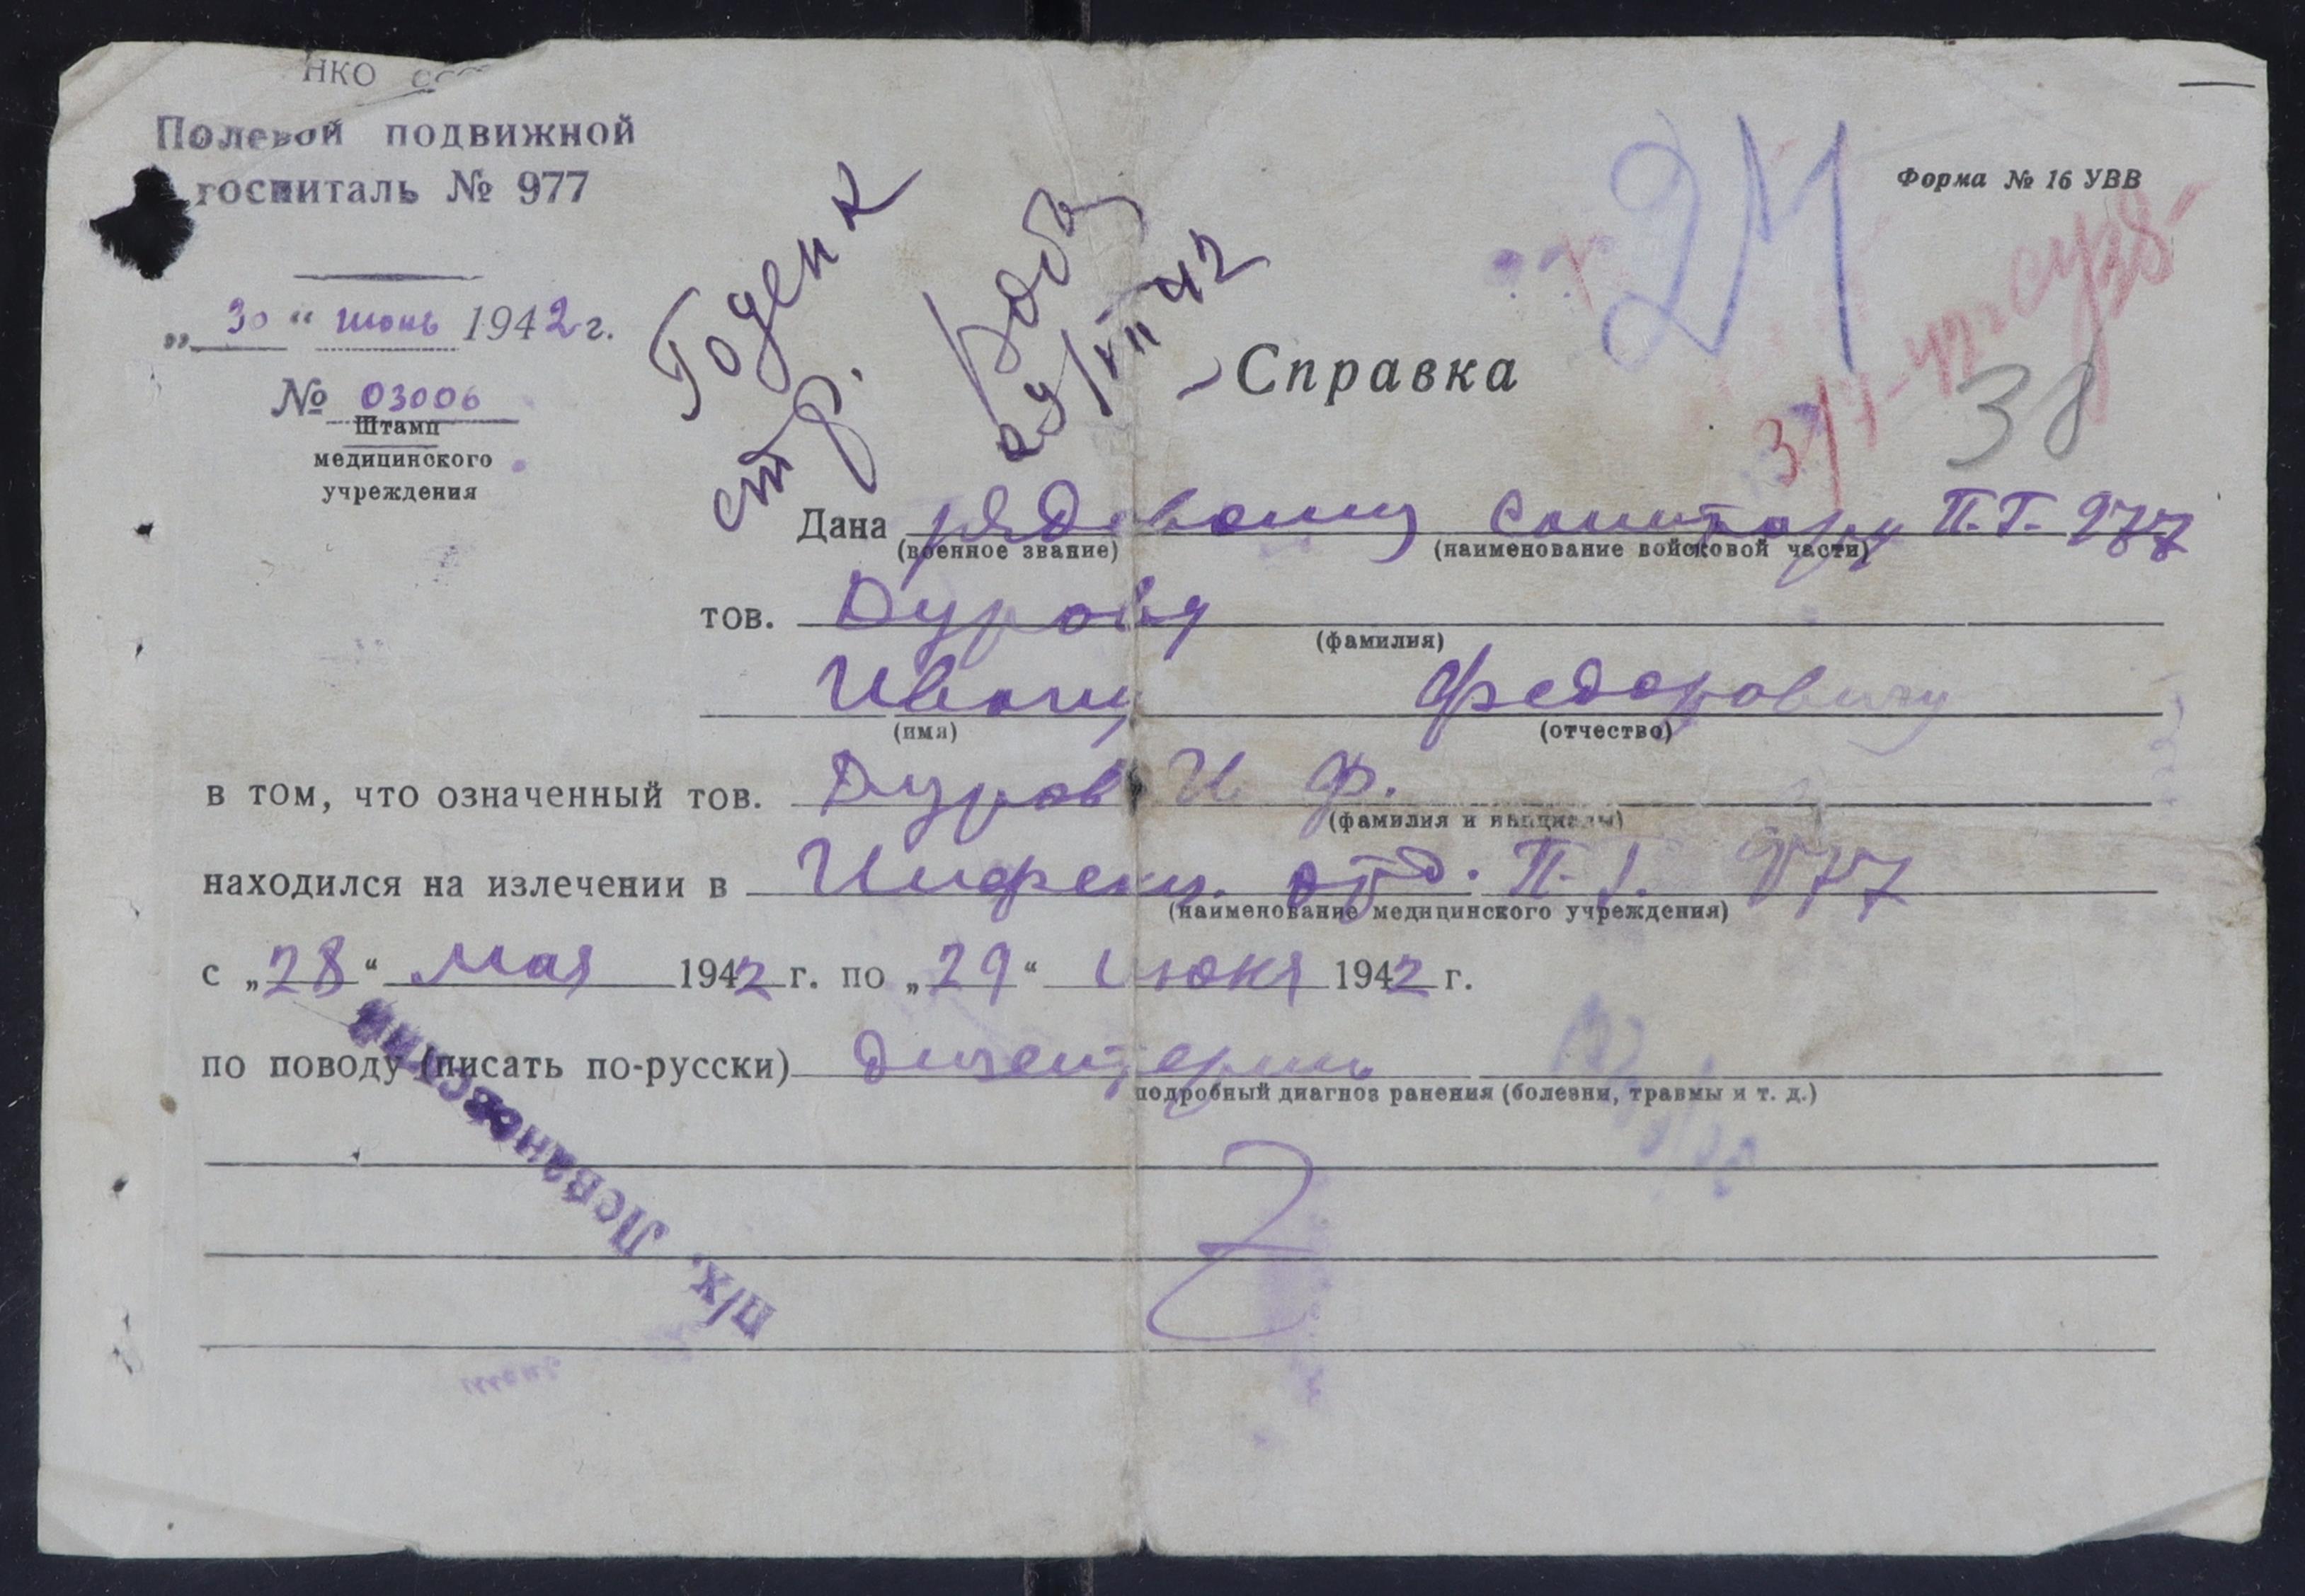 НКО
Полевой подвижной
госпиталь № 977
„30“ июнь 1942 г.
№ 03006
Штамп
медицинского
учреждения
Годен к
стр.
29/VII 42
21
Форма № 16 УВВ
38
Справка
Дана рядовому санитару П.Г. 977
(военное звание) (наименование войсковой части)
тов. Дурову
(фамилия)
Ивану Федоровичу
(имя) (отчество)
в том, что означенный тов. Дуров И Ф.
(фамилия и инициалы)
находился на излечении в Инфекц. отд. П.Г. 977
(наименование медицинского учреждения)
с „28“ мая 1942 г. по „29“ июня 1942 г.
по поводу (писать по-русски) дизентерии
подробный диагноз ранения (болезни, травмы и т. д.)
п/х. Леваневский